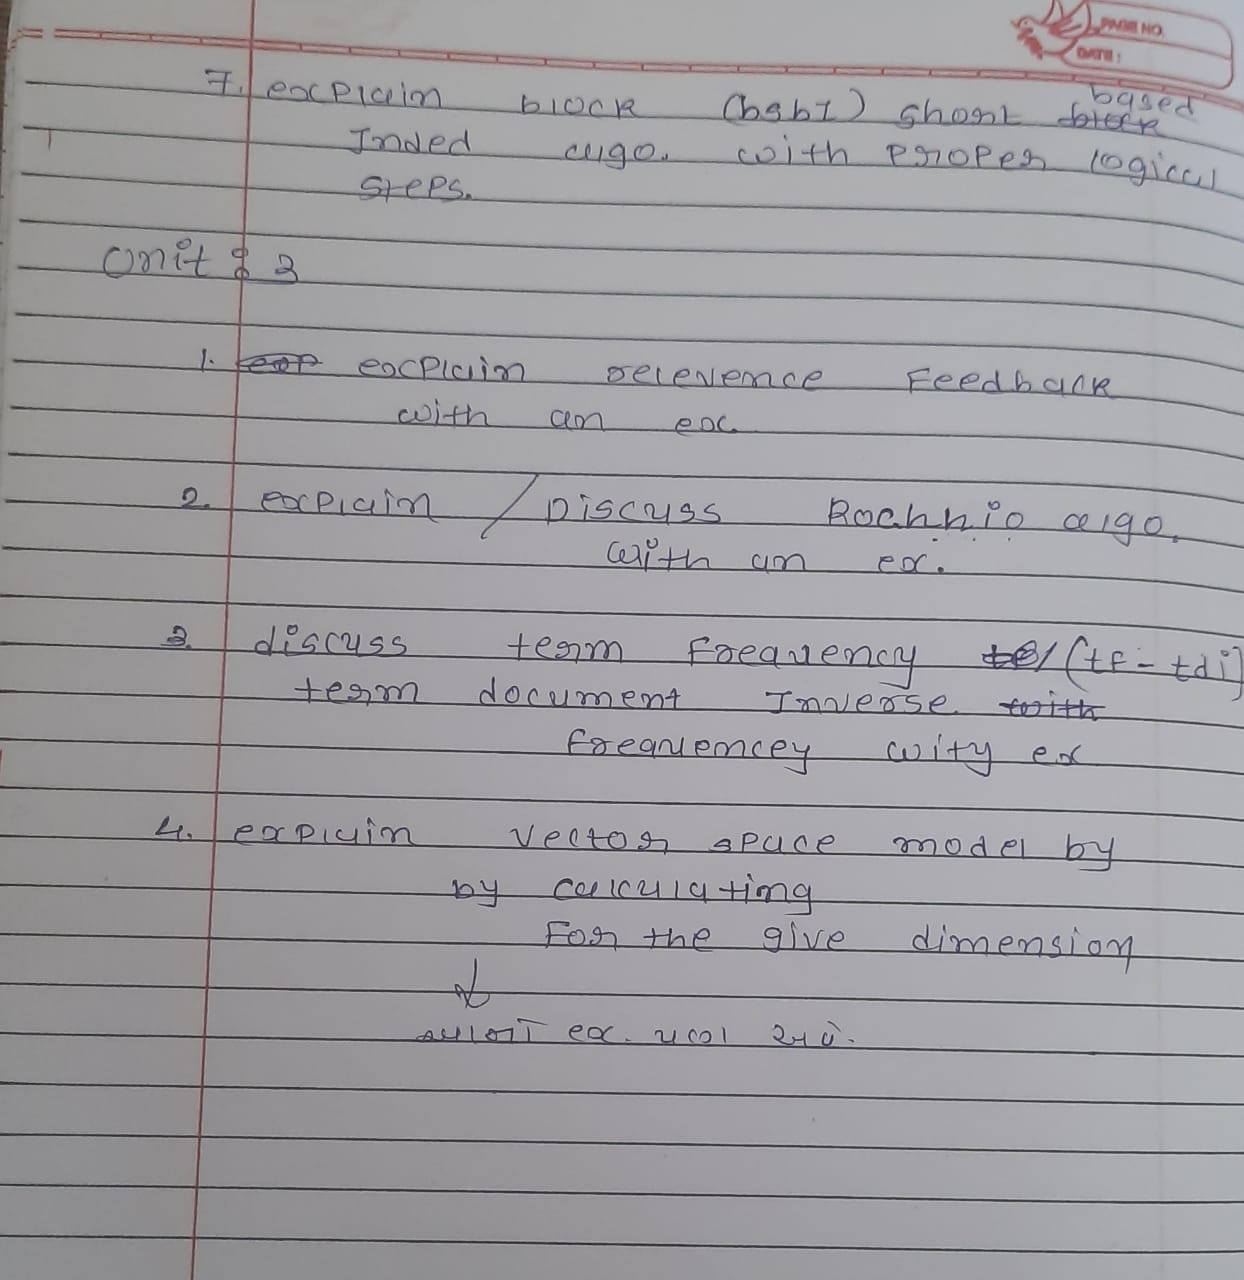 PAGE NO.
DATE:
7. explain block (bsbI) short based
Inded algo. with proper logical
steps.
Unit : 3
1. explain relevence Feedback
with an ex.
2. explain / Discuss Rochhio algo.
with an ex.
3. discuss term Frequency (tf - tdi)
term document Inverse
frequencey wity ex
4. explain vector space model by
by calculating
For the give dimension
ex.